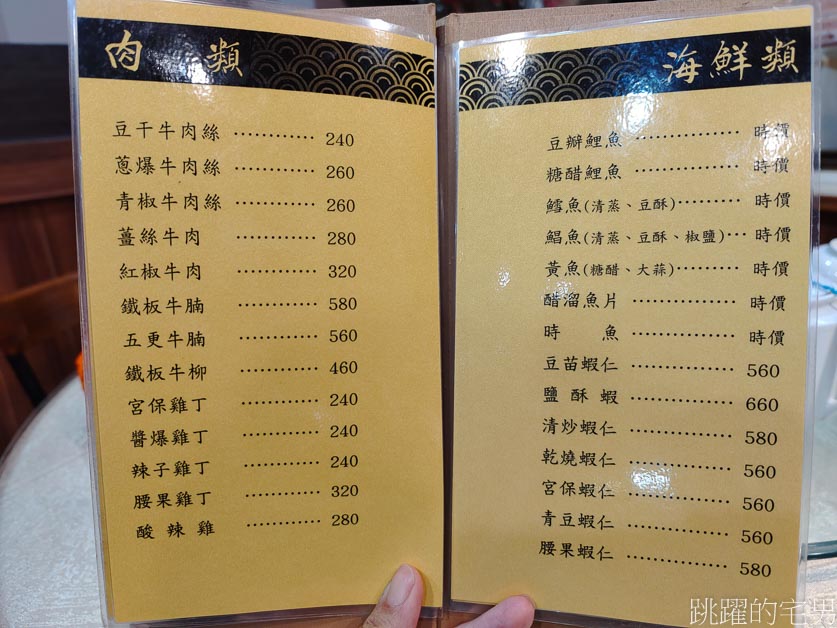 肉　類
豆干牛肉絲 ………… 240
蔥爆牛肉絲 ………… 260
青椒牛肉絲 ………… 260
薑絲牛肉 ………… 280
紅椒牛肉 ………… 320
鐵板牛腩 ………… 580
五更牛腩 ………… 560
鐵板牛柳 ………… 460
宮保雞丁 ………… 240
醬爆雞丁 ………… 240
辣子雞丁 ………… 240
腰果雞丁 ………… 320
酸辣雞 ………… 280
海鮮類
豆瓣鯉魚 ………… 時價
糖醋鯉魚 ………… 時價
鱈魚(清蒸、豆酥)……… 時價
鯧魚(清蒸、豆酥、椒鹽)… 時價
黃魚(糖醋、大蒜)……… 時價
醋溜魚片 ………… 時價
時　魚 ………… 時價
豆苗蝦仁 ………… 560
鹽酥蝦 ………… 660
清炒蝦仁 ………… 580
乾燒蝦仁 ………… 560
宮保蝦仁 ………… 560
青豆蝦仁 ………… 560
腰果蝦仁 ………… 580
跳躍的宅男